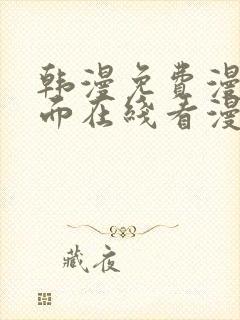 韩漫免费漫
而在线看漫
藏夜